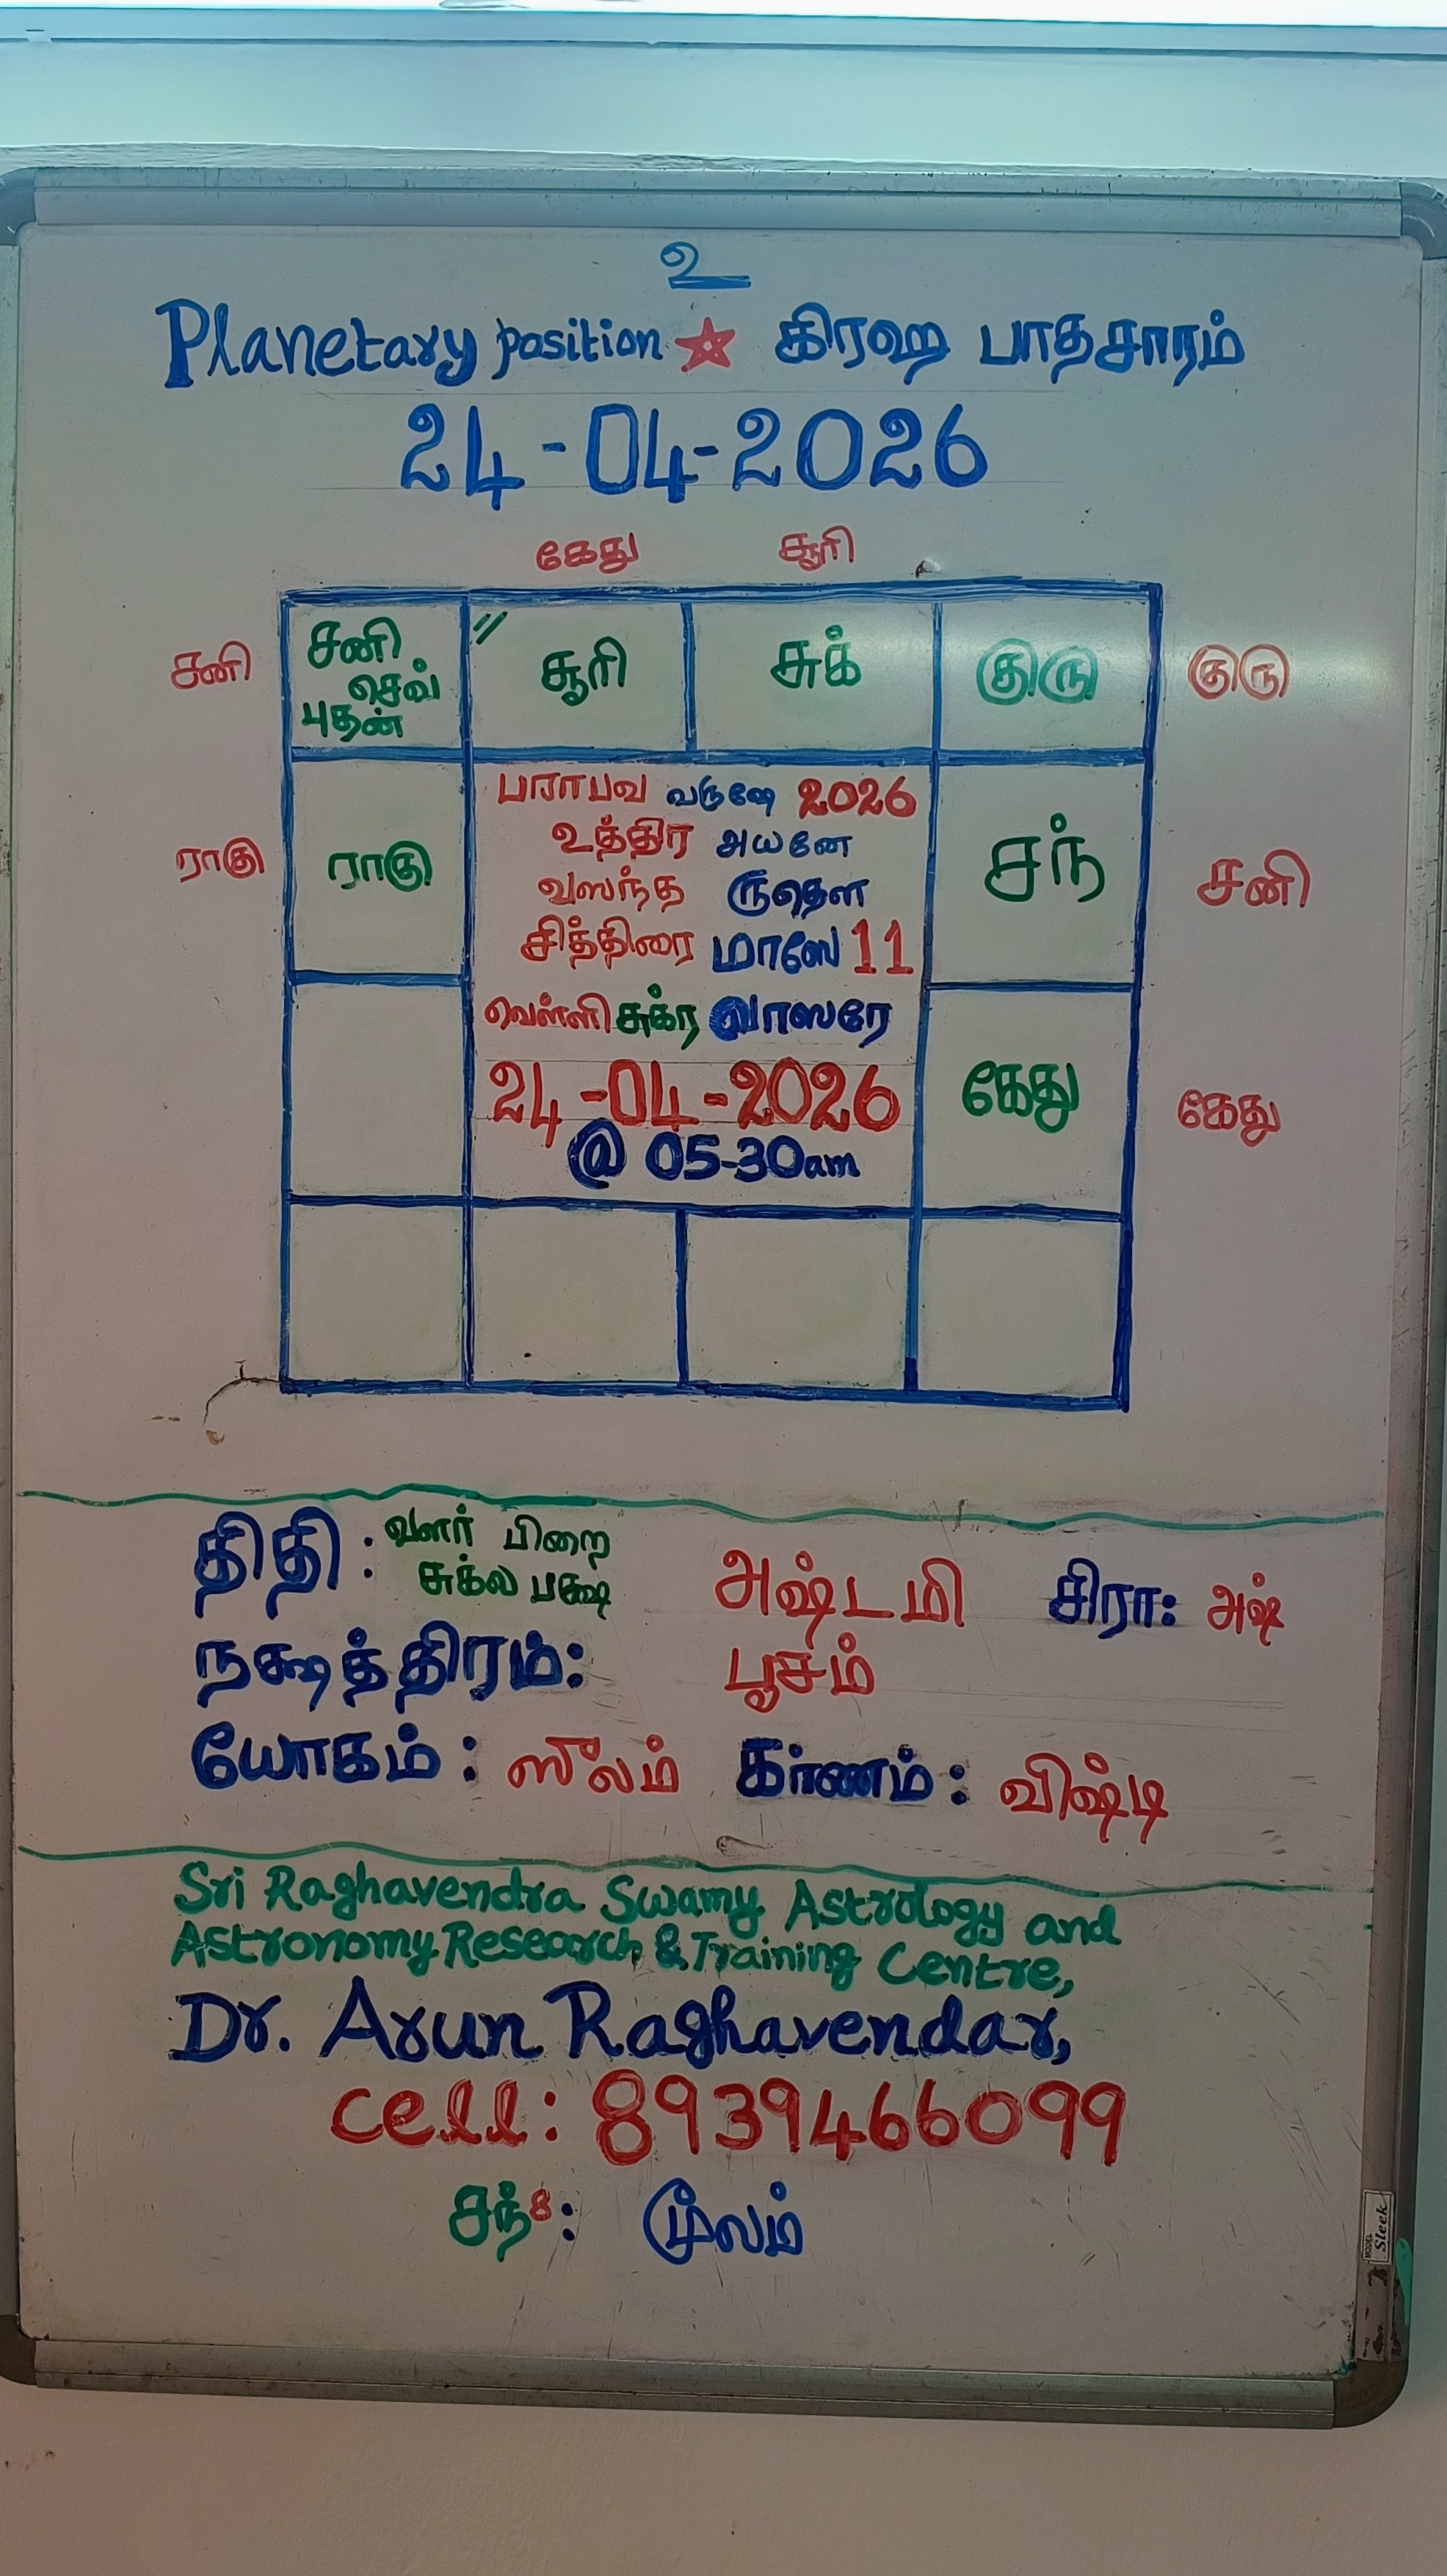 உ
Planetary position ☆ கிரஹ பாதசாரம்
24-04-2026
கேது சூரி
சனி சனி செவ் புதன் // சூரி சுக் குரு குரு
பராபவ வருஷே 2026
உத்திர அயனே
ராகு ராகு சந் சனி
வஸந்த ருதௌ
சித்திரை மாஸே 11
வெள்ளி சுக்ர வாஸரே
24-04-2026
கேது கேது
@ 05-30am
திதி : வளர் பிறை
சுக்ல பக்ஷ அஷ்டமி சிரா: அஷ்
நக்ஷத்திரம்: பூசம்
யோகம் : ஸூலம் கரணம் : விஷ்டி
Sri Raghavendra Swamy Astrology and
Astronomy Research & Training Centre,
Dr. Arun Raghavendar,
cell: 8939466099
சந்8: மூலம்
Sleek